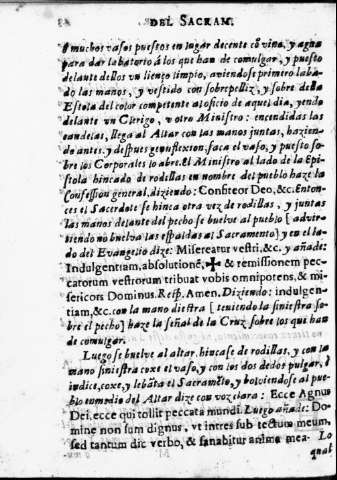 DEL SACRAM.
o muchos vasos puestos en lugar decente cō vino, y agua
para dar labatorio à los que han de comulgar, y puesto
delante dellos vn lienço limpio, aviendose primero laba-
do las manos, y vestido con sobrepelliz, y sobre della
Estola del color competente al oficio de aquel dia, yendo
delante vn Clerigo, v otro Ministro: encendidas las
candelas, llega al Altar con las manos juntas, hazien-
do antes, y despues genuflexion: saca el vaso, y puesto so-
bre los Corporales lo abre. El Ministro al lado de la Epi-
stola hincado de rodillas en nombre del pueblo haze la
Confession general, diziendo: Confiteor Deo, &c. Enton-
ces el Sacerdote se hinca otra vez de rodillas, y juntas
las manos delante del pecho se buelve al pueblo [advir-
tiendo no buelva las espaldas al Sacramento] y en el la-
do del Evangelio dize: Misereatur vestri, &c. y añade:
Indulgentiam, absolutionē, ✠ & remissionem pec-
catorum vestrorum tribuat vobis omnipotens, & mi-
sericors Dominus. Resp. Amen. Diziendo: indulgen-
tiam, &c. con la mano diestra [teniendo la siniestra so-
bre el pecho] haze la señal de la Cruz sobre los que han
de comulgar.
Luego se buelve al altar, hincase de rodillas, y con la
mano siniestra coxe el vaso, y con los dos dedos pulgar, è
indice, coxe, y lebāta el Sacramēto, y bolviendose al pue-
blo enmedio del Altar dize con voz clara: Ecce Agnus
Dei, ecce qui tollit peccata mundi. Luego añade: Do-
mine non sum dignus, vt intres sub tectum meum,
sed tantum dic verbo, & sanabitur anima mea. Lo
qual